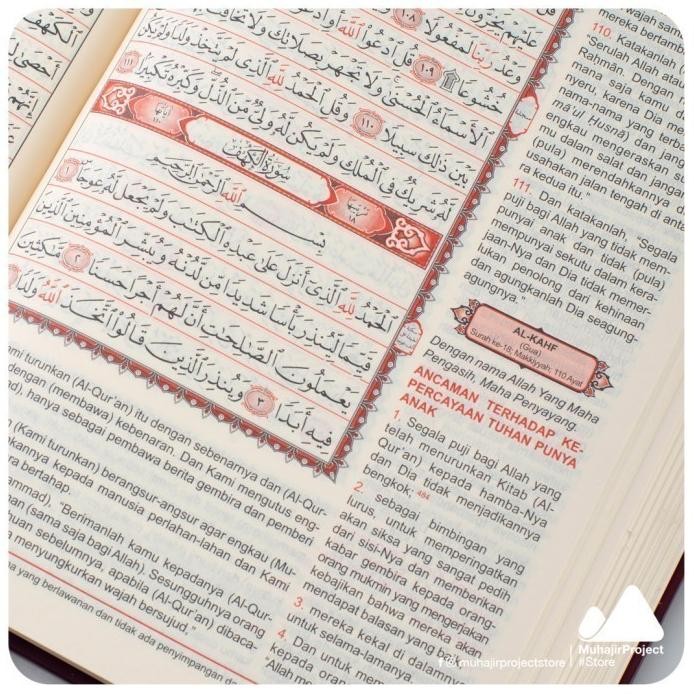 وَعْدُ رَبِّنَا لَمَفْعُولًا ١٠٨
خُشُوعًا ۩ ١٠٩ قُلِ ادْعُوا اللَّهَ أَوِ ادْعُوا
الْأَسْمَاءُ الْحُسْنَىٰ وَلَا تَجْهَرْ بِصَلَاتِكَ وَلَا تُخَافِتْ
بَيْنَ ذَٰلِكَ سَبِيلًا ١١٠ وَقُلِ الْحَمْدُ لِلَّهِ الَّذِي لَمْ يَتَّخِذْ وَلَدًا وَلَمْ يَكُنْ
لَهُ شَرِيكٌ فِي الْمُلْكِ وَلَمْ يَكُنْ لَهُ وَلِيٌّ مِنَ الذُّلِّ وَكَبِّرْهُ تَكْبِيرًا ١١١
سُورَةُ الْكَهْفِ
بِسْمِ اللَّهِ الرَّحْمَٰنِ الرَّحِيمِ
الْحَمْدُ لِلَّهِ الَّذِي أَنْزَلَ عَلَىٰ عَبْدِهِ الْكِتَابَ وَلَمْ يَجْعَلْ لَهُ عِوَجًا ١
قَيِّمًا لِيُنْذِرَ بَأْسًا شَدِيدًا مِنْ لَدُنْهُ وَيُبَشِّرَ الْمُؤْمِنِينَ الَّذِينَ
يَعْمَلُونَ الصَّالِحَاتِ أَنَّ لَهُمْ أَجْرًا حَسَنًا ٢ مَاكِثِينَ
فِيهِ أَبَدًا ٣ وَيُنْذِرَ الَّذِينَ قَالُوا اتَّخَذَ اللَّهُ وَلَدًا
mereka bertamb
110. Katakanlah (
"Serulah Allah ata
Rahmān. Dengan
mana saja kamu
nyeru, karena Dia me
nama-nama yang terba
mā'ul Ḥusnā) dan jang
engkau mengeraskan su
mu dalam salat dan janga
(pula) merendahkannya d
usahakan jalan tengah di anta
ra kedua itu."
111. Dan katakanlah, "Segala
puji bagi Allah yang tidak mem-
punyai anak dan tidak (pula)
mempunyai sekutu dalam kera-
jaan-Nya dan Dia tidak memer-
lukan penolong dari kehinaan
dan agungkanlah Dia seagung-
agungnya."
AL-KAHF
(Gua)
Surah ke-18; Makkiyyah, 110 Ayat
Dengan nama Allah Yang Maha
Pengasih, Maha Penyayang.
ANCAMAN TERHADAP KE-
PERCAYAAN TUHAN PUNYA
ANAK
1. Segala puji bagi Allah yang
telah menurunkan Kitab (Al-
Qur'an) kepada hamba-Nya
dan Dia tidak menjadikannya
bengkok; 484
2. sebagai bimbingan yang
lurus, untuk memperingatkan
akan siksa yang sangat pedih
dari sisi-Nya dan memberikan
kabar gembira kepada orang-
orang mukmin yang mengerjakan
kebajikan bahwa mereka akan
mendapat balasan yang baik
3. mereka kekal di dalamnya
untuk selama-lamanya.
4. Dan untuk mem
kepada orang
"Allah mem
ami turunkan (Al-Qur'an) itu dengan sebenarnya dan (Al-Qur-
dengan (membawa) kebenaran. Dan Kami mengutus eng-
ad), hanya sebagai pembawa berita gembira dan pemberi
(Kami turunkan) berangsur-angsur agar engkau (Mu-
kannya kepada manusia perlahan-lahan dan Kami
a bertahap.
ammad), "Berimanlah kamu kepadanya (Al-Qur-
an (sama saja bagi Allah). Sesungguhnya orang
tuan sebelumnya, apabila (Al-Qur'an) dibaca-
menyungkurkan wajah bersujud,"
na yang berlawanan dan tidak ada penyimpangan da
muhajirprojectstore
MuhajirProject
#Store